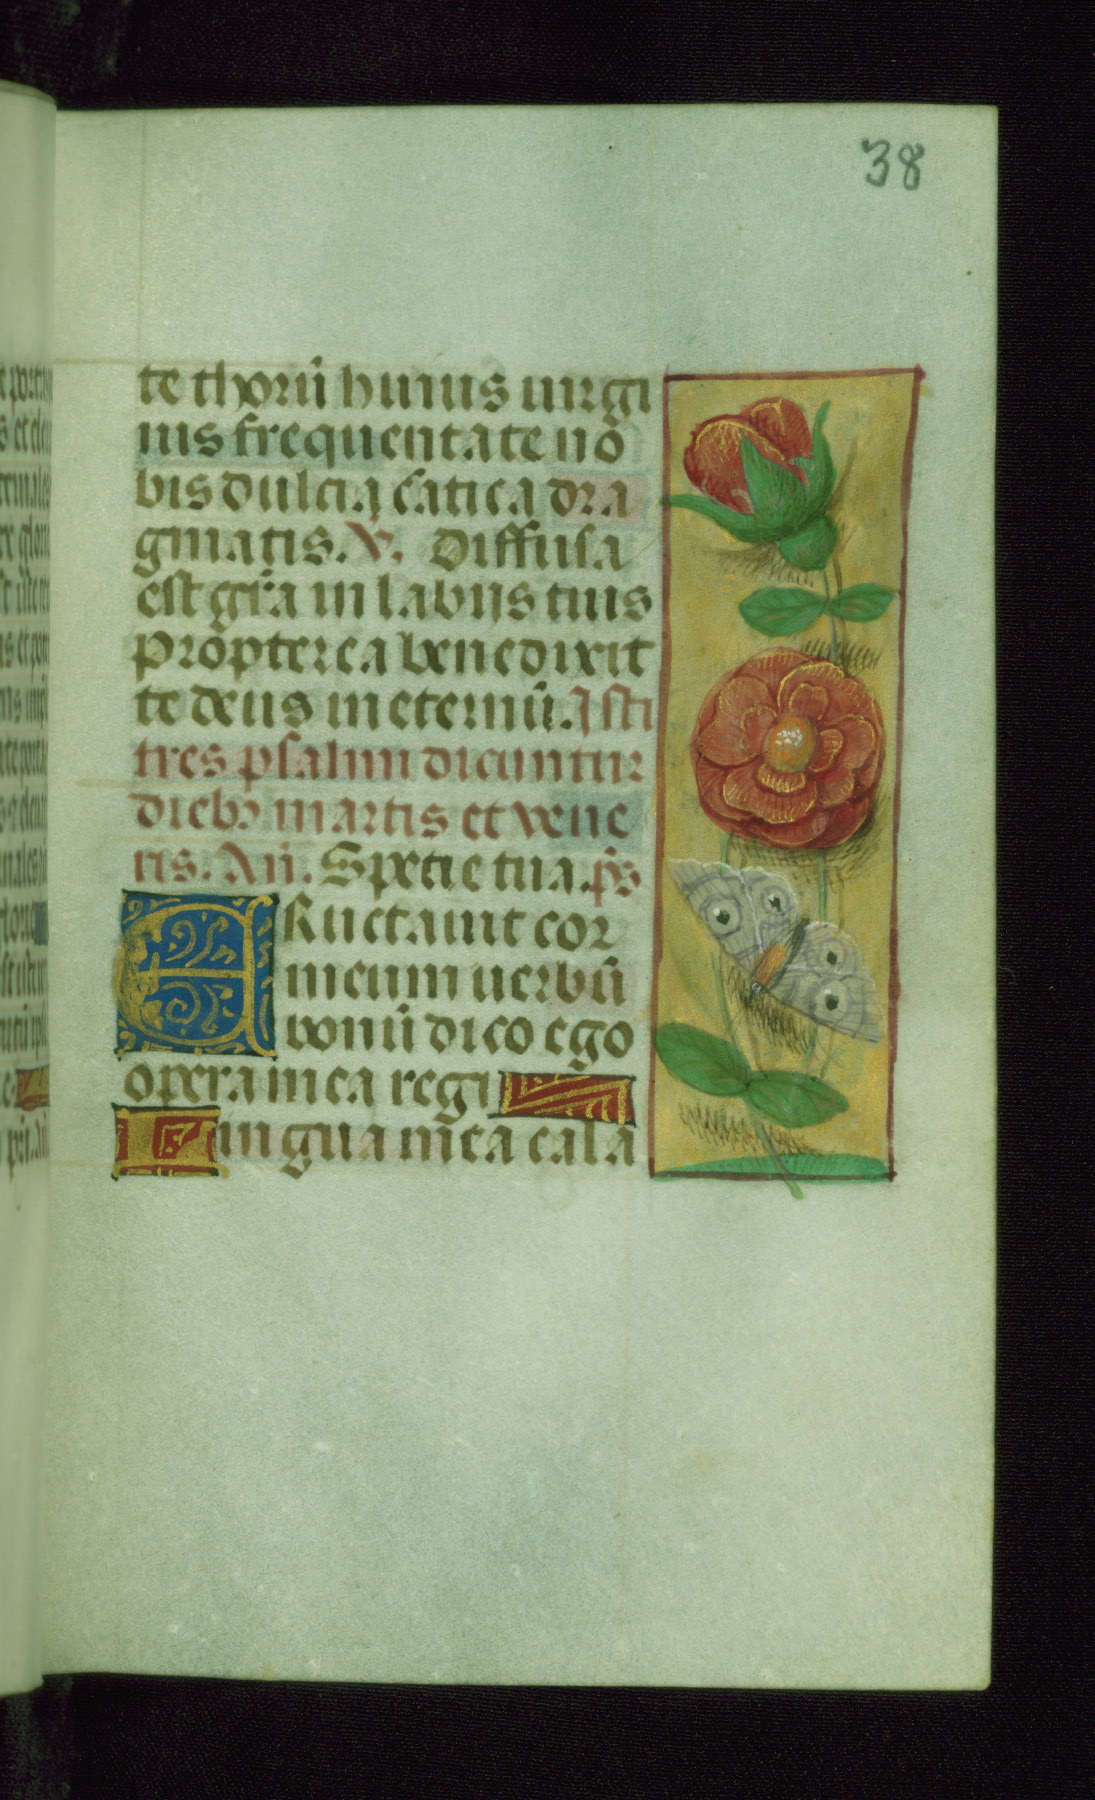 38
te thorū huius uirgi
nis frequentate no
bis dulcia cātica dra
gmatis. V. Diffusa
est gr̄a in labijs tuis
Propterea benedixit
te deus in eternū. Isti
tres psalmi dicuntur
diebꝫ martis et vene
ris. An̄. Specie tua. p̄s
ERuctauit cor
meum uerbū
bonū dico ego
opera mea regi
Lingua mea cala